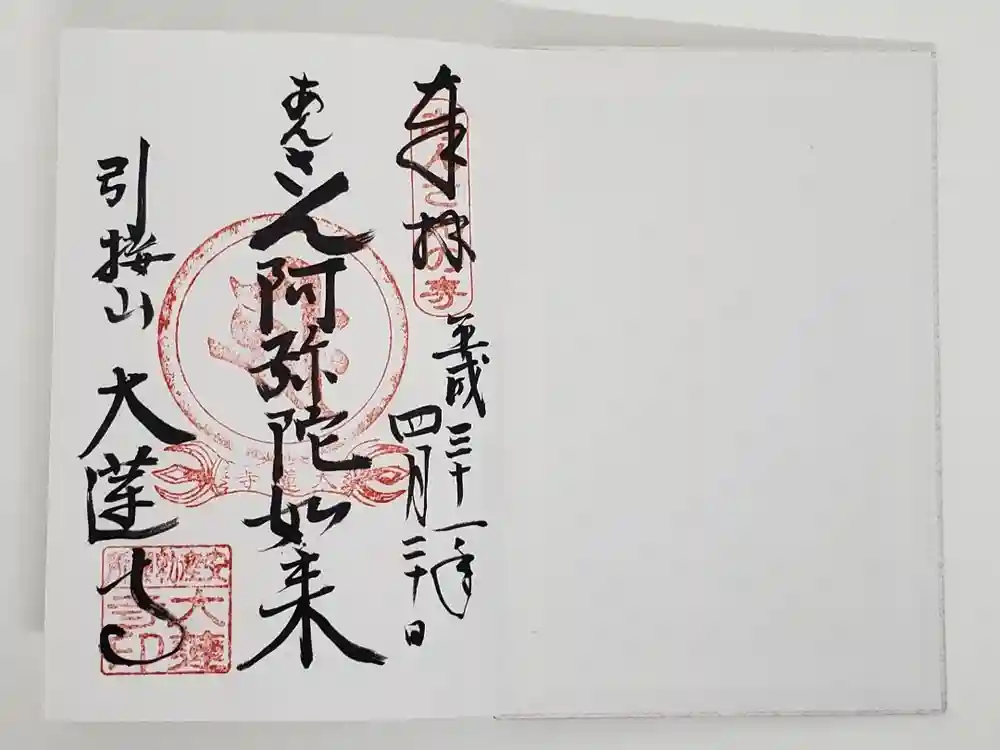 奉拝
平成三十一年
四月二十日
あんさん阿弥陀如来
引接山 大蓮寺
大蓮寺
大蓮寺印